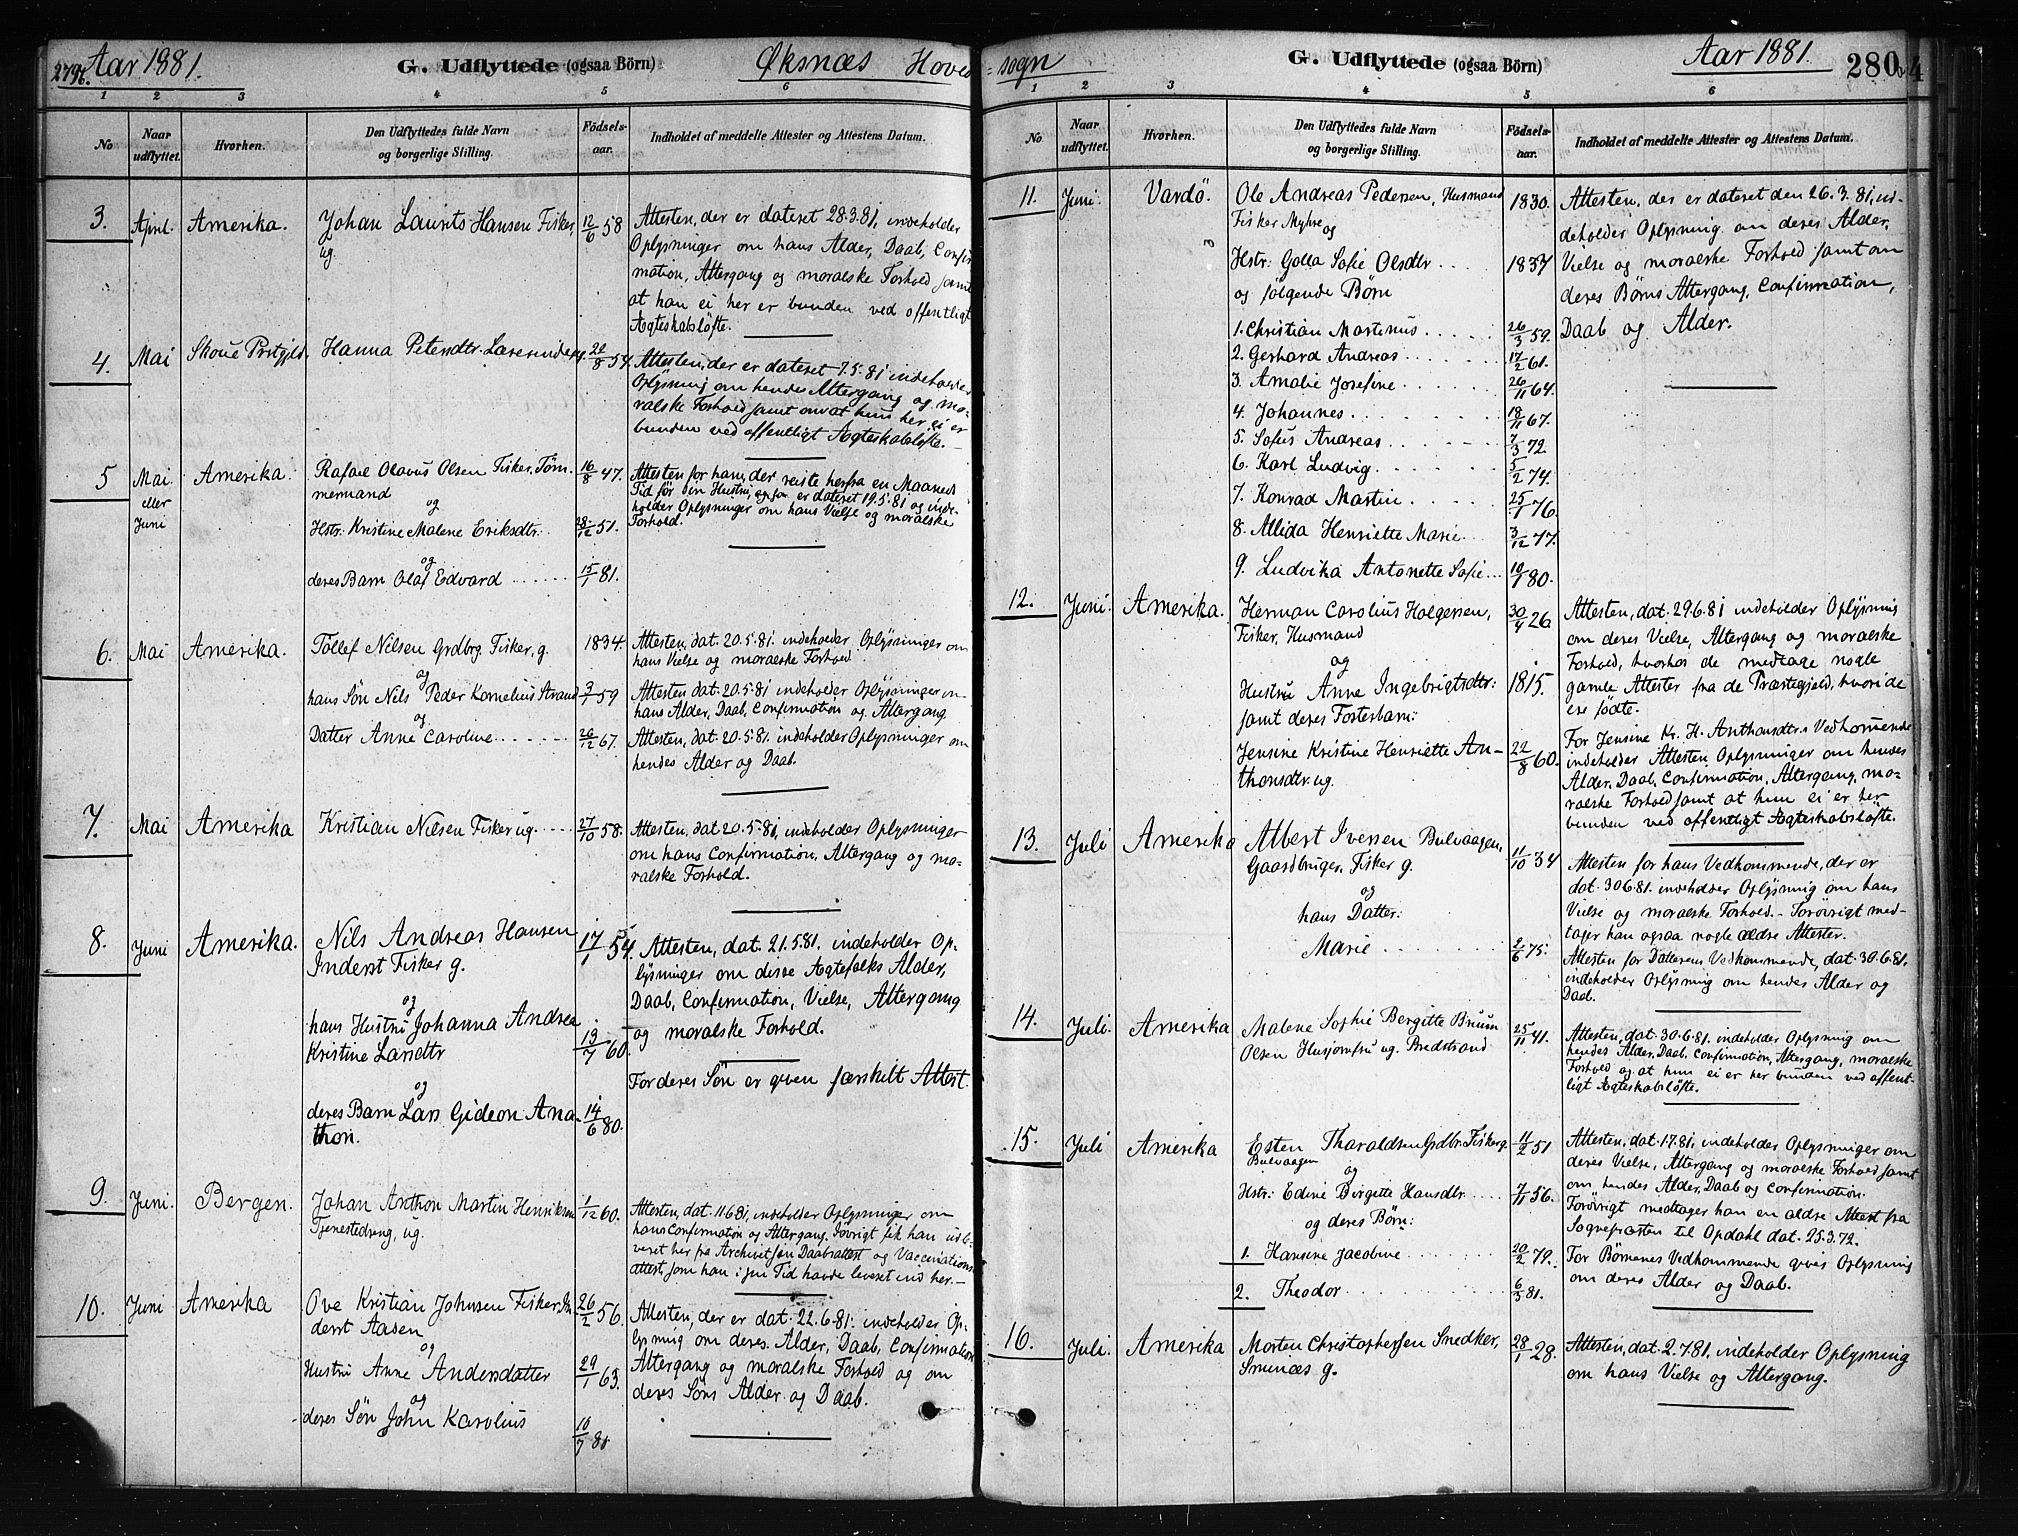 279b. Aar 1881.
G. Udflyttede (ogsaa Börn)
Øksnæs Hoved
1 2 3 4 5 6
No
Naar udflyttet.
Hvorhen.
Den Udflyttedes fulde Navn og borgerlige Stilling.
Födsels-aar.
Indholdet af meddelte Attester og Attestens Datum.
3. April. Amerika. Johan Laurits Hansen Fisker, 12/6 58 Attesten, der er dateret 28.3.81, indeholder
ug. Oplysninger om hans Alder, Daab, Confir
mation, Altergang og moralske Forhold samt
at han ei her er bunden ved offentligt
Ægteskabsløfte.
4. Mai Skoue Prstgjld. Hanna Petersdtr. 22/8 54. Attesten, der er dateret 7.5.81 indeholder
Oplysning om hendes Altergang og mo-
ralske Forhold samt om at hun her ei er
bunden ved offentligt Ægteskabsløfte.
5 Mai Amerika. Rafael Olavus Olsen Fisker, Töm- 16/8 47. Attesten for ham, der reiste herfra en Maaneds
eller mermand Tid før sin Hustru, er dateret 19.5.81 og inde-
Juni og holder Oplysninger om hans Vielse og moralske
Hstr. Kristine Malene Eriksdtr. 28/12 51. Forhold.
og
deres Barn Olaf Edvard 15/1 81.
6. Mai Amerika. Tollef Nilsen Grdbrg. Fisker, g. 1834. Attesten, dat. 20.5.81. indeholder Oplysninger om
hans Vielse og moralske Forhold.
og
hans Søn Nils Peder Kornelius Strand 3/7 59 Attesten dat. 20.5.81 indeholder Oplysninger om
hans Alder, Daab, Confirmation og Altergang.
og
Datter Anne Caroline 26/12 67. Attesten, dat. 20.5.81. indeholder Oplysninger om
hendes Alder og Daab.
7. Mai Amerika Kristian Nilsen Fisker ug. 27/10 58. Attesten, dat 20.5.81, indeholder Oplysninger
om hans Confirmation, Altergang og mo-
ralske Forhold.
8. Juni Amerika. Nils Andreas Hansen 17/1 54. Attesten, dat. 21.5.81. indeholder Op-
Inderst Fisker g. lysninger om disse Ægtefolks Alder,
og Daab, Confirmation, Vielse, Altergang
hans Hustru Johanna Andrea og moralske Forhold.
Kristine Larsdtr 13/7 60.
For deres Søn er given særskilt Attest.
og
deres Barn Lars Gideon Ana- 14/6 80.
thon.
9. Juni. Bergen. Johan Anthon Martin Henriksen 1/12 60. Attesten, dat. 11.6.81, indeholder Oplysninger om
Tjenestedreng, ug. hans Confirmation og Altergang. Iøvrigt fik han ud-
veret her fra Archivet sin Daabsattest og Vaccinations
attest, som han i sin Tid havde leveret ind her.
10. Juni Amerika Ove Kristian Johnsen Fisker, In 26/2 56. Attesten, der er dat. 22.6.81. indeholder Op-
derst Aasen lysning om deres Alder, Daab, Confirmation
og Altergang og moralske Forhold og om
Hustru Anne Andersdatter 29/1 63. deres Søns Alder og Daab.
og
deres Søn John Karolius 10/7 80
sogn
G. Udflyttede (ogsaa Börn)
Aar 1881.
280
1 2 3 4 5 6
No
Naar udflyttet.
Hvorhen.
Den Udflyttedes fulde Navn og borgerlige Stilling.
Födsels-aar.
Indholdet af meddelte Attester og Attestens Datum.
11. Juni. Vardö. Ole Andreas Pedersen, Husmand 1830. Attesten, der er dateret den 26.3.81, in-
Fisker Myhre og deholder Oplysning om deres Alder,
Hstr: Golla Sofie Olsdtr 1837 Vielse og moralske Forhold samt om
og følgende Börn deres Børns Altergang, Confirmation,
1. Christian Martinus 26/3 59. Daab og Alder.
2. Gerhard Andreas 17/2 61.
3. Amalie Josefine 26/11 64.
4. Johannes 18/11 67.
5. Sofus Andreas 7/3 72
6. Karl Ludvig 5/2 74.
7. Konrad Martin 25/1 76.
8. Allida Henriette Marie 3/12 77.
9. Ludvika Antonette Sofie 10/1 80.
12. Juni. Amerika. Herman Carolius Holgersen, 30/4 26. Attesten, dat. 29.6.81 indeholder Oplysning
Fisker, Husmand om deres Vielse, Altergang og moralske
og Forhold, hvorhos de medtage nogle
Hustru Anne Ingebrigtsdtr: 1815. gamle Attester fra de Præstegjeld, hvori de
samt deres Fosterbarn: ere fødte.
Jensine Kristine Henriette An- 22/8 60. For Jensine Kr. H. Anthonsdtr.s Vedkommende
thonsdtr. ug. indeholder Attesten Oplysninger om hendes
Alder, Daab, Confirmation, Altergang, mo-
ralske Forhold samt at hun ei er her
bunden ved offentligt Ægteskabsløfte.
13. Juli Amerika Albert Iversen Bulvaagen, 11/10 34 Attesten for hans Vedkommende, der er
Gaardbruger, Fisker g. dat. 30.6.81. indeholder Oplysning om hans
og Vielse og moralske Forhold. - Forövrigt med-
hans Datter: tager han ogsaa nogle ældre Attester.
Marie 2/6 75. Attesten for Datterens Vedkommende, dat. 30.6.81.
indeholder Oplysning om hendes Alder og
Daab.
14. Juli. Amerika Malene Sophie Bergitte Bruum 25/11 41. Attesten, dat. 30.6.81. indeholder Oplysning om
Olsen Husjomfru ug. Bredstrand hendes Alder, Daab, Confirmation, Altergang, moralske
Forhold og at hun ei er her bunden ved offent-
ligt Ægteskabsløfte.
15. Juli Amerika Esten Tharaldsen Grdbr. Fisker g. 11/2 51 Attesten, dat. 1.7.81, indeholder Oplysninger om
Bulvaagen og deres Vielse, Altergang og moralske Forhold samt
Hstr: Edine Birgitte Hansdtr. 7/11 56. om hendes Alder, Daab og Confirmation.
og deres Børn: Forövrigt medtager han en ældre Attest fra
Sognepræsten til Opdahl dat. 25.3.72.
1. Hansine Jacobine 20/2 79. For Børnenes Vedkommende gives Oplysning
2. Theodor 6/3 81. om deres Alder og Daab.
16. Juli. Amerika Morten Christophersen Snedker, 28/1 28. Attesten, dat. 2.7.81, indeholder Oplysning
Smines g. om hans Vielse og Altergang.